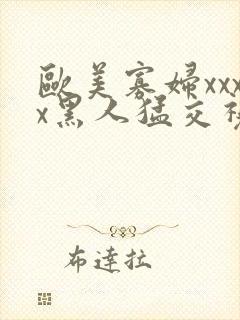 歐美寡婦xxx
x黑人猛交
布達拉